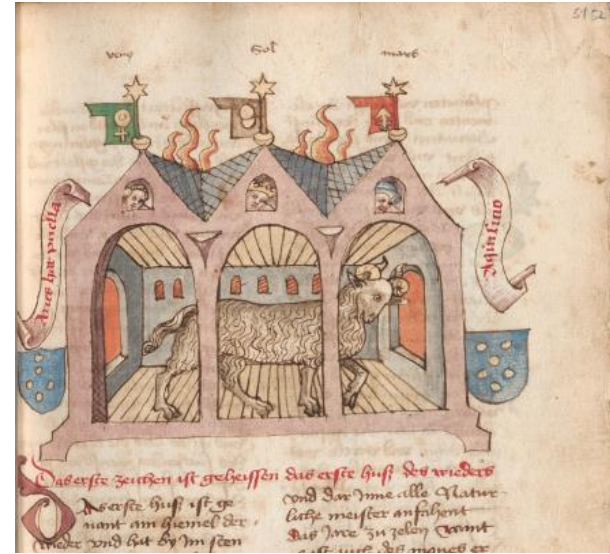 51 52
venus Sol mars
Aries hat puella
Das erste zeichen ist geheissen das erste huß des wieders
Das erste huß ist ge
nant am hiemel der
wieder vnd hat by im seen
vnd dar Inne alle Natur
liche meister anfahent
das Jare zu zelen want
des mones er